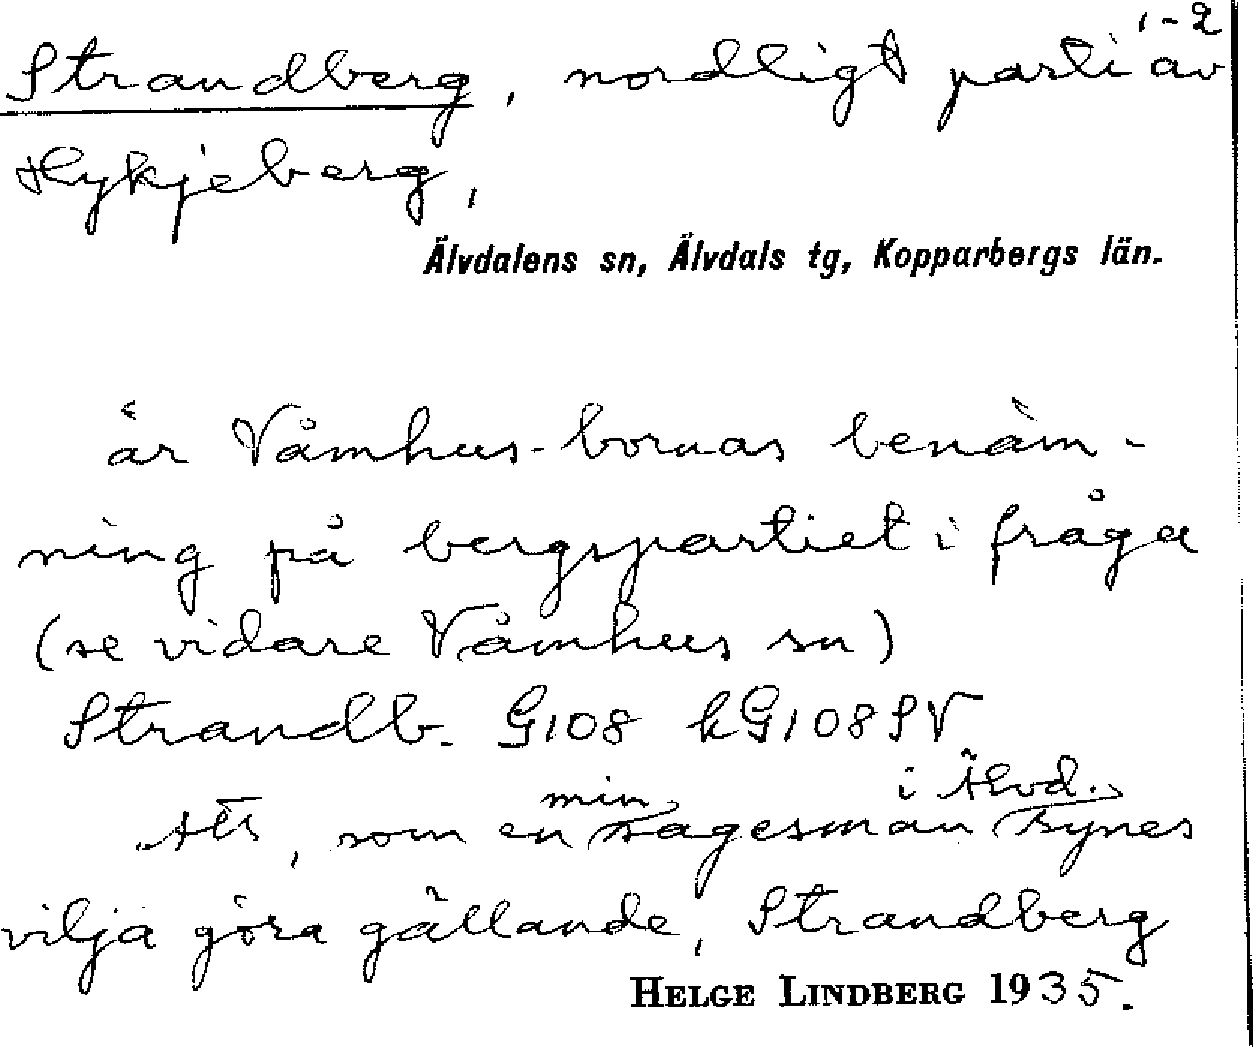 1-2
Strandberg, nordligt parti av
Hykjeberg,
Älvdalens sn, Älvdals tg, Kopparbergs län.
är Våmhus-bornas benäm-
ning på bergspartiet i fråga
(se vidare Våmhus sn)
Strandb. G108 kG108SV
min i Älvd.
Att, som en sagesman synes
vilja göra gällande, Strandberg
HELGE LINDBERG 1935.